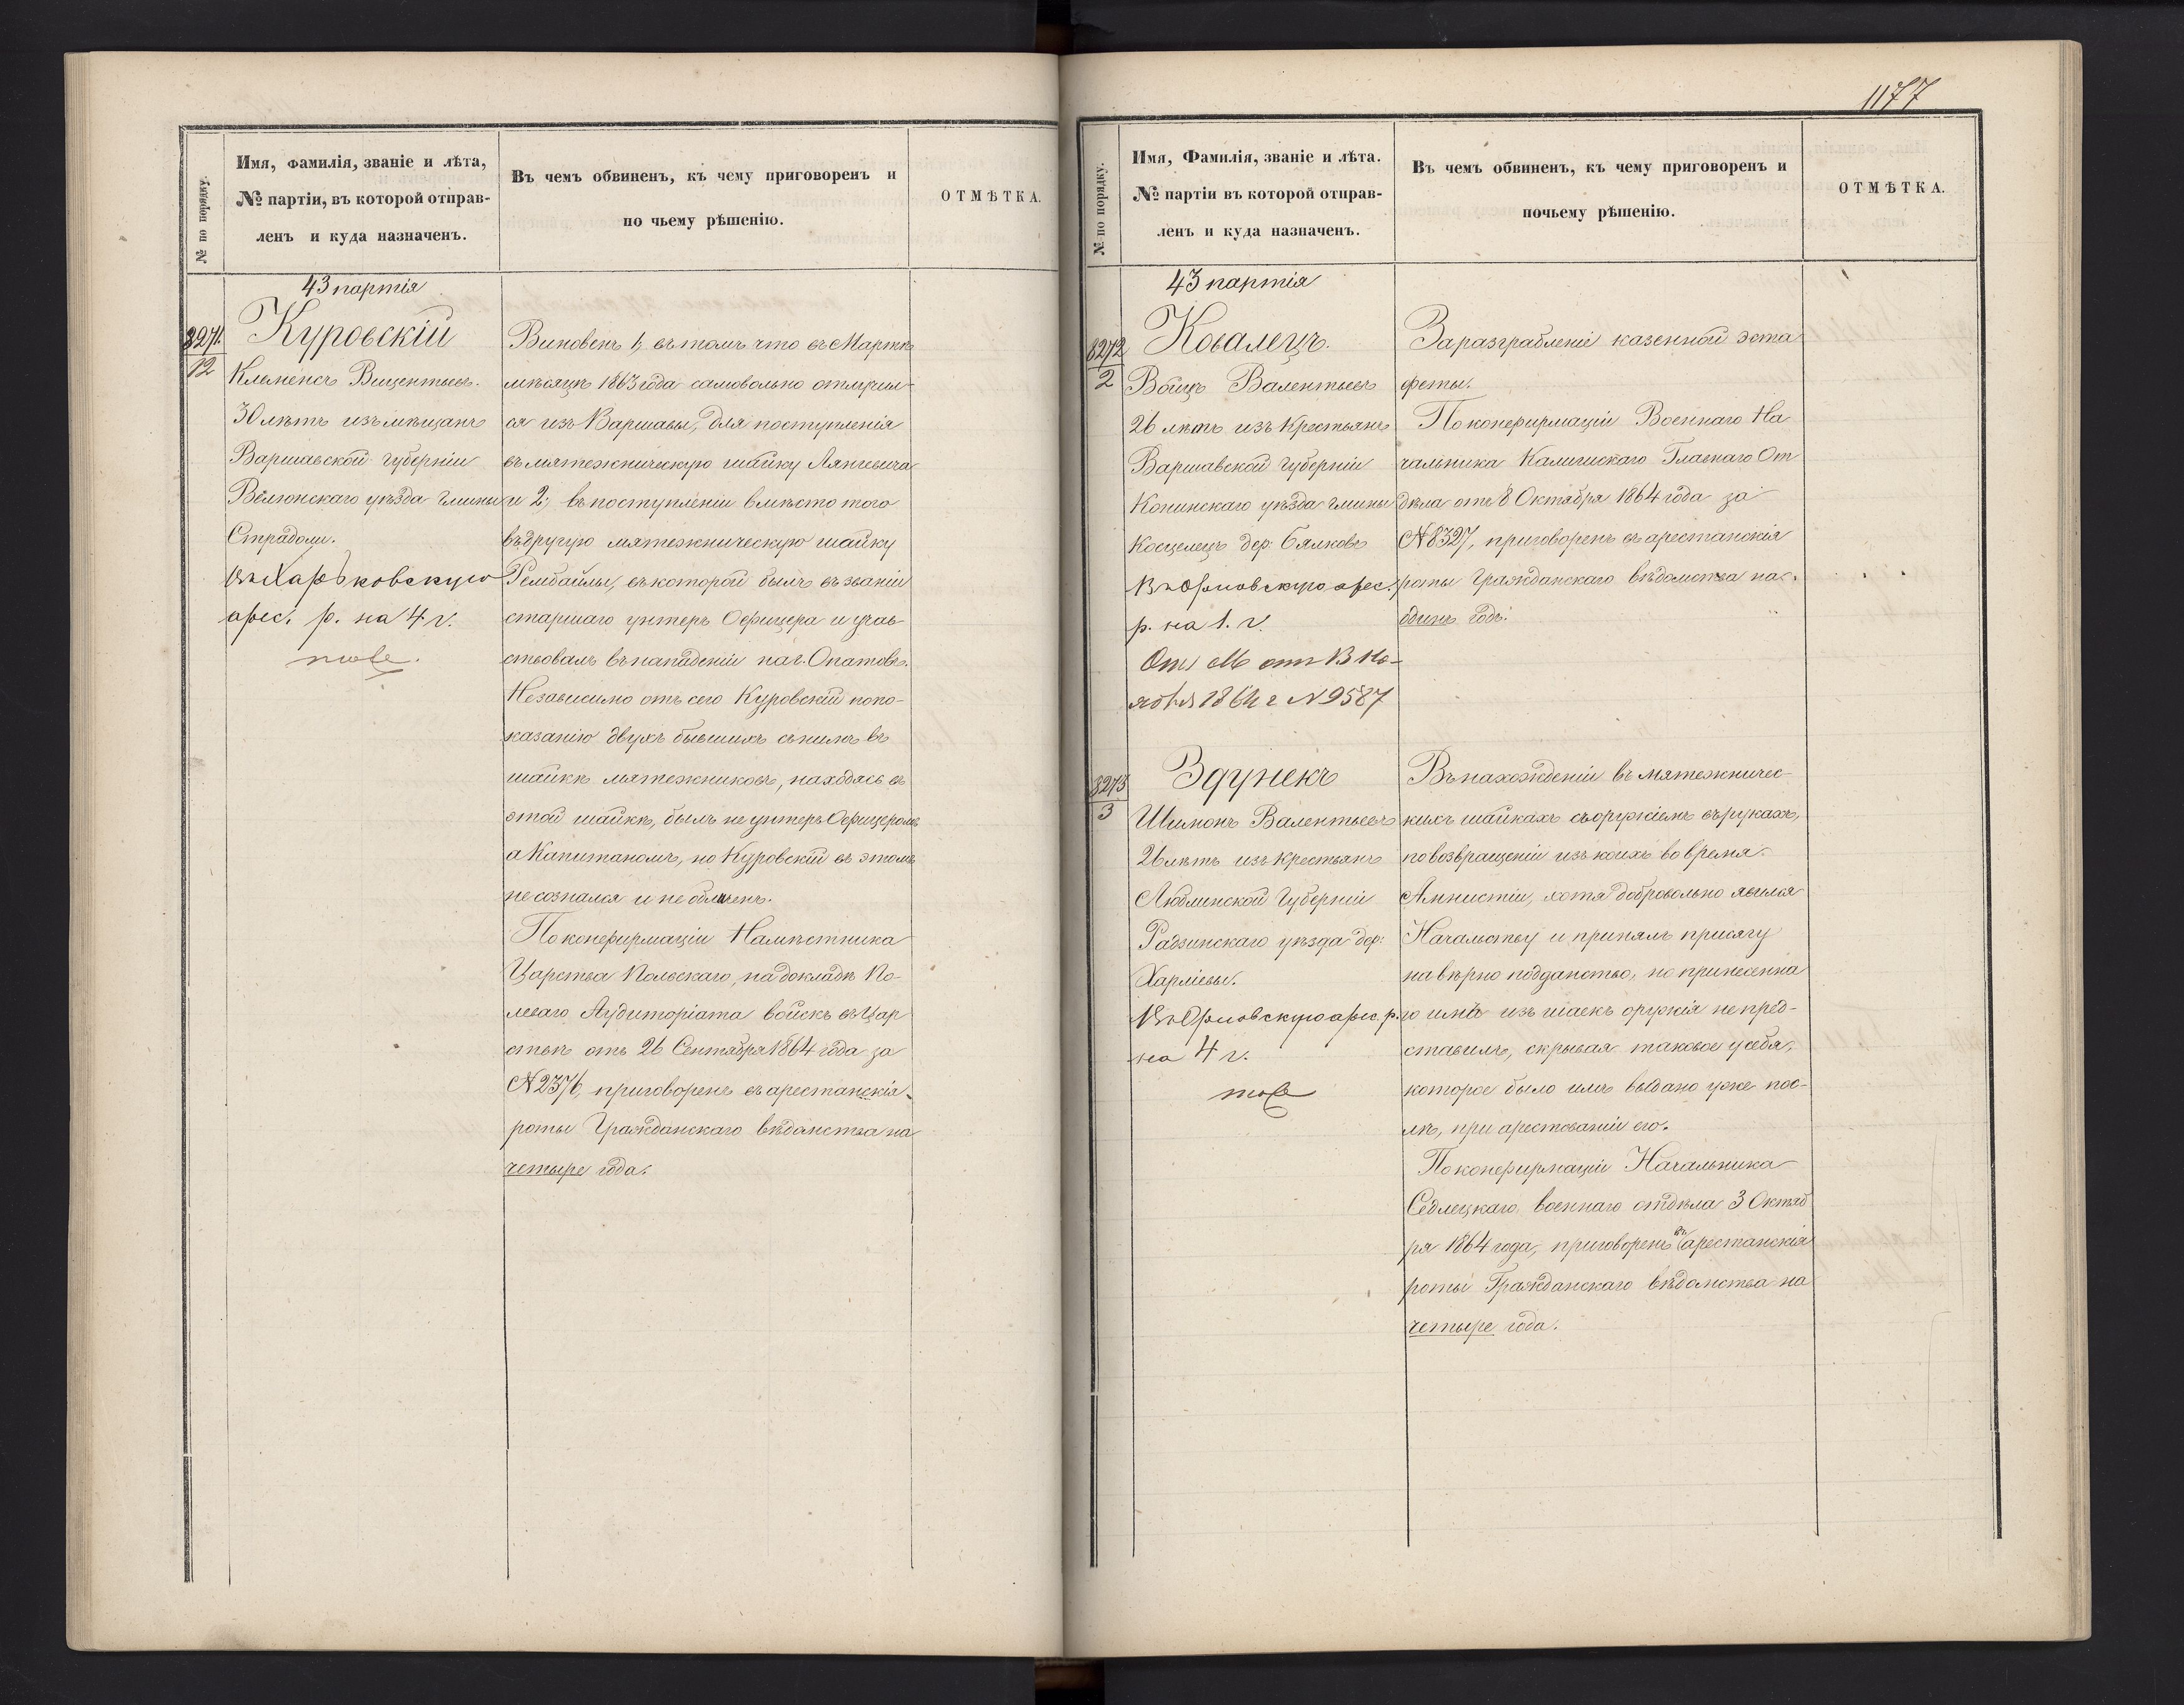 № по порядку.
Имя, фамилія, званіе и лѣта,
№ партіи, въ которой отправ-
ленъ и куда назначенъ.
Въ чемъ обвиненъ, къ чему приговоренъ и
по чьему рѣшенію.
ОТМѢТКА.
43 партія
8271.
12
Куровскій
Клеменсъ Вицентьевъ.
30 лѣтъ изъ мѣщанъ
Варшавской губерніи
Велюнскаго уѣзда гмины
Страдомъ.
Въ Харьковскую
арес. р. на 4 г.
тоже.
Виновенъ 1, въ томъ что въ Мартѣ
мѣсяцѣ 1863 года самовольно отлучил-
ся изъ Варшавы, для поступленія
въ мятежническую шайку Лянгевича
и 2, въ поступленіи вмѣсто того
въ другую мятежническую шайку
Рембайлы, въ которой былъ въ званіи
старшаго унтеръ Офицера и учав-
ствовалъ въ нападеніи на г. Опатовъ.
Независимо отъ сего Куровскій по по-
казанію двухъ бывшихъ съ нимъ въ
шайкѣ мятежниковъ, находясь въ
этой шайкѣ, былъ не унтеръ Офицеромъ
а Капитаномъ, но Куровскій въ этомъ
не сознался и не обличенъ.
По конфирмаціи Намѣстника
Царства Польскаго, на докладѣ По-
леваго Аудиторіата войскъ въ Цар
ствѣ отъ 26 Сентября 1864 года за
№ 2376, приговоренъ въ арестанскія
роты Гражданскаго вѣдомства на
четыре года.
1177
№ по порядку.
Имя, Фамилія, званіе и лѣта.
№ партіи въ которой отправ-
ленъ и куда назначенъ.
Въ чемъ обвиненъ, къ чему приговоренъ и
почьему рѣшенію.
ОТМѢТКА.
43 партія
8272
2
Ковалецъ.
Войцъ Валентьевъ
26 лѣтъ изъ Крестьянъ
Варшавской Губерніи
Конинскаго уѣзда гмины
Косцелецъ дер. Бялковъ
Въ Орловскую арес.
р. на 1. г.
От. М отъ 13 Но-
ября 1864 г N 9587
За разграбленіе казенной эста
феты.
По конфирмаціи Военнаго На
чальника Калишскаго Главнаго От
дѣла отъ 8 Октября 1864 года за
№ 8327, приговоренъ въ арестанскія
роты Гражданскаго вѣдомства на
одинъ годъ.
8273
3
Здунекъ
Шимонъ Валентьевъ
26 лѣтъ изъ крестьянъ
Люблинской Губерніи
Радзинскаго уѣзда дер:
Харлеевы.
Въ Орловскую арес. р.
на 4 г.
тоже
Въ нахожденіи въ мятежничес-
кихъ шайкахъ съ оружіемъ въ рукахъ,
по возвращеніи изъ коихъ во время
Амнистіи, хотя добровольно явился
Начальству и принялъ присягу
на вѣрно подданство, но принесенна
го имъ изъ шаекъ оружія не пред-
ставилъ, скрывая таковое у себя,
которое было имъ выдано уже пос-
лѣ, при арестованіи его.
По конфирмаціи Начальника
Седлецкаго военнаго отдѣла 3 Октяб
ря 1864 года, приговоренъ въ арестанскія
роты Гражданскаго вѣдомства на
четыре года.